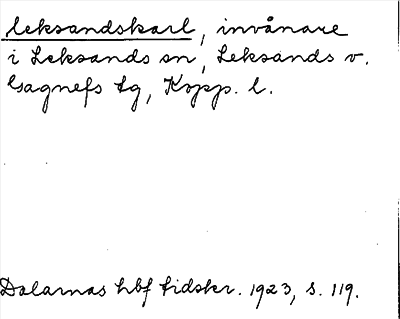 leksandskarl, invånare
i Leksands sn, Leksands o.
Gagnefs tg, Kopp. l.
Dalarnas hbf tidskr. 1923, s. 119.